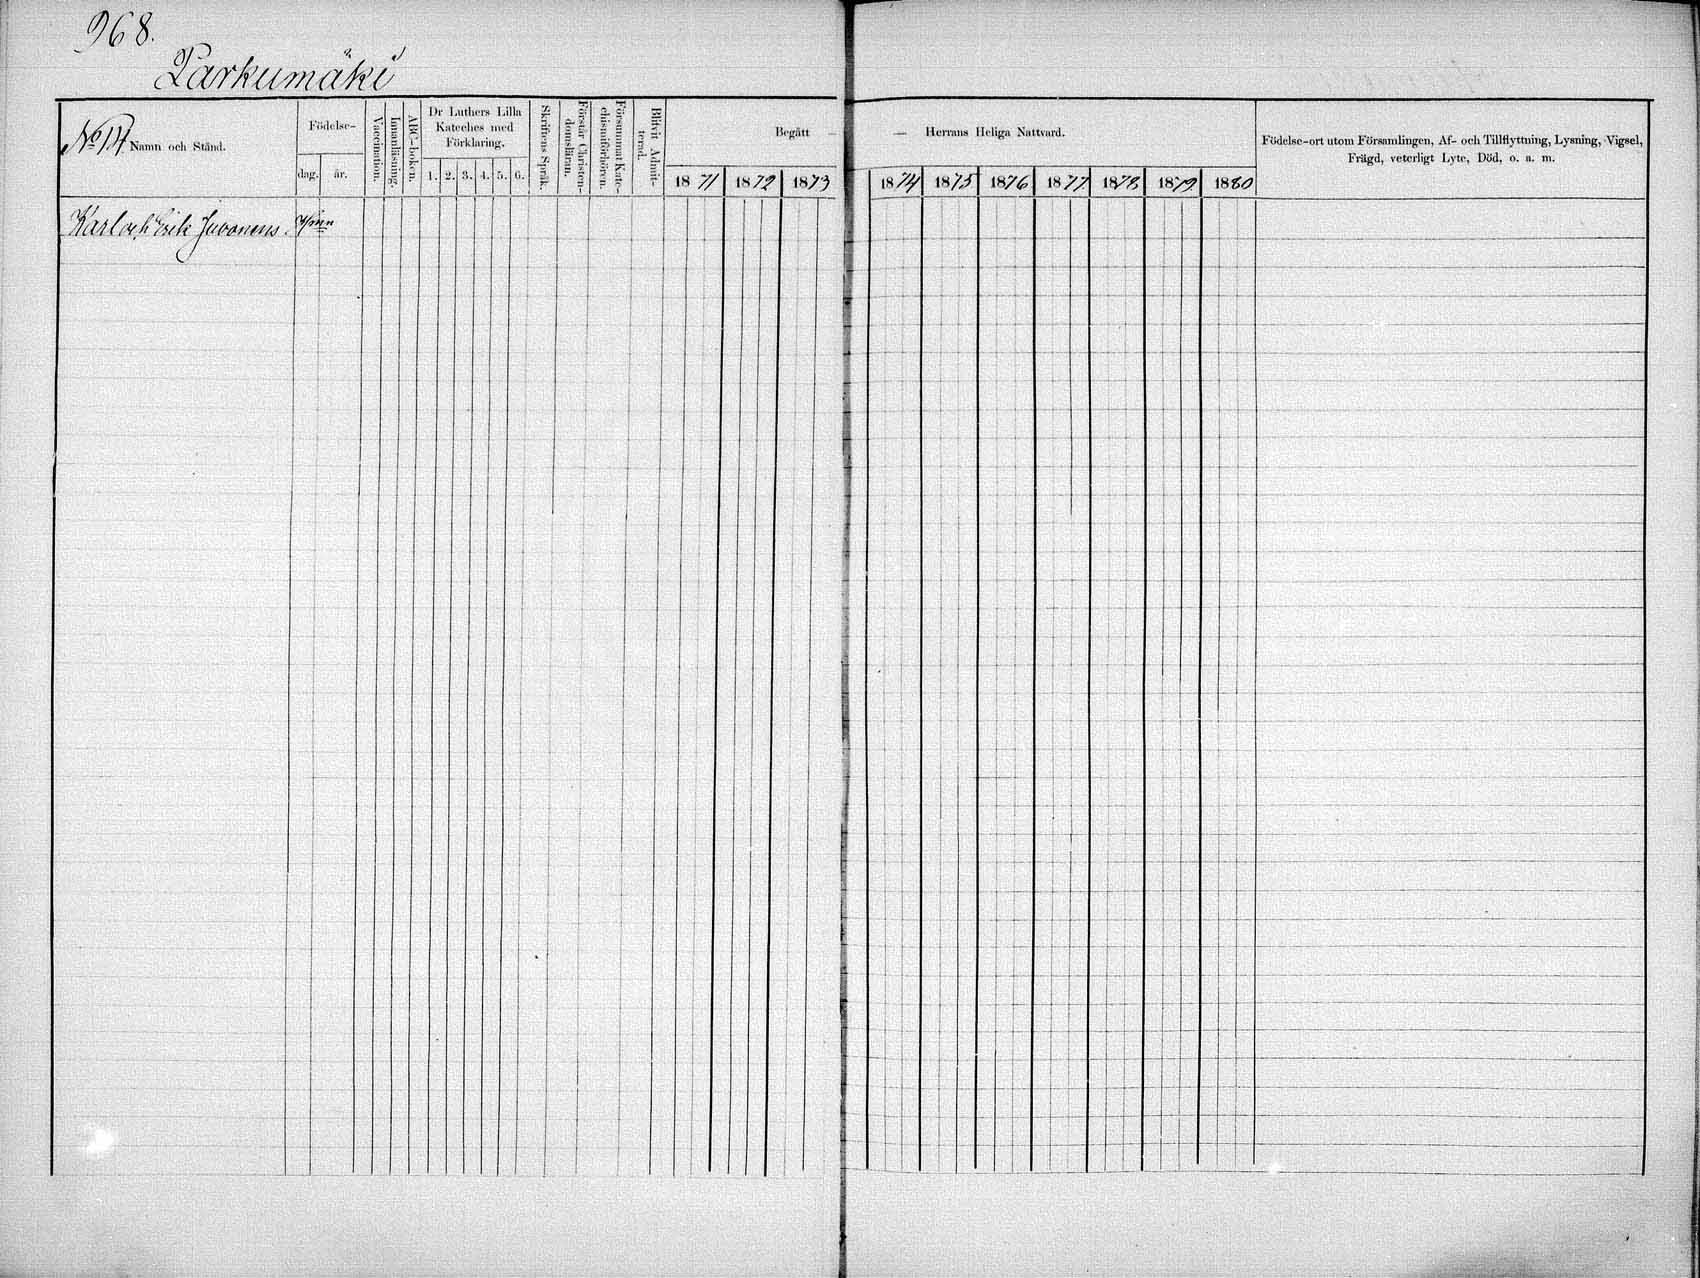 968.
Parkumäki
No 14 Namn och Stånd.
Födelse-
dag. år.
Vaccination.
Innanläsning.
ABC-boken.
Dr Luthers Lilla
Kateches med
Förklaring.
1. 2. 3. 4. 5. 6.
Skriftens Språk.
Förstår Christen-
domsläran.
Försummat Kate-
chismiförhören.
Blifvit Admit-
terad.
Begått — — Herrans Heliga Nattvard.
1871 1872 1873 1874 1875 1876 1877 1878 1879 1880
Födelse-ort utom Församlingen, Af- och Tillflyttning, Lysning, Vigsel,
Frägd, veterligt Lyte, Död, o. a. m.
Karl och Erik Juvonens